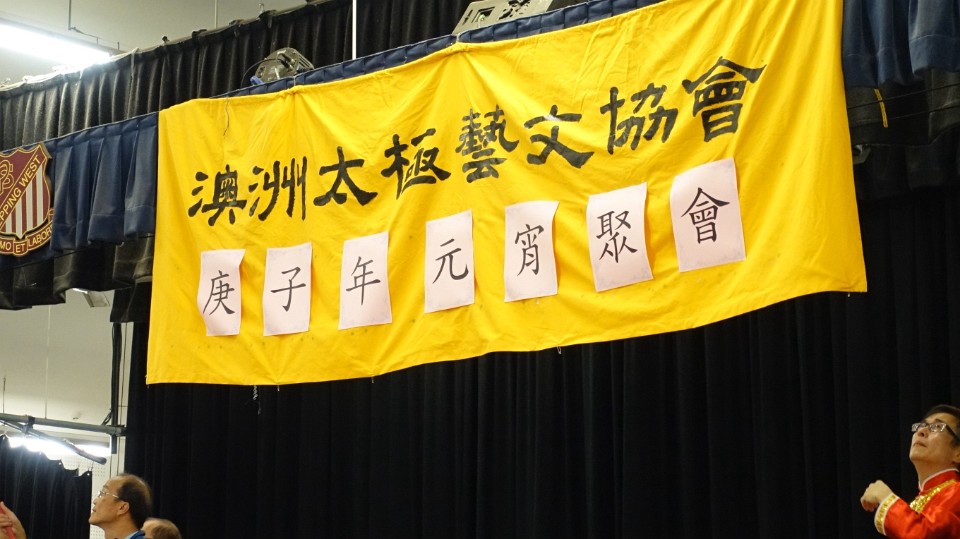 澳洲太極藝文協會
庚子年元宵聚會
PPING WEST
MO ET LABOR